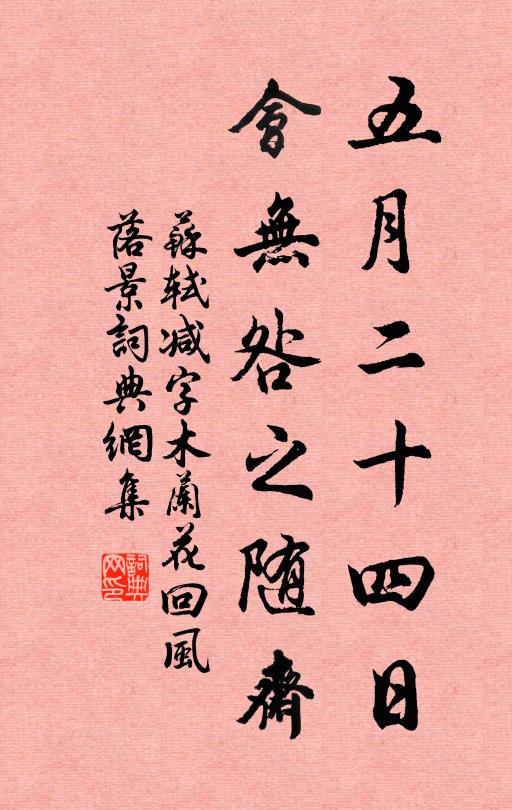 五月二十四日
會無咎之随齋
蘇軾减字木蘭花回風
落景詞典網集
詞典網印